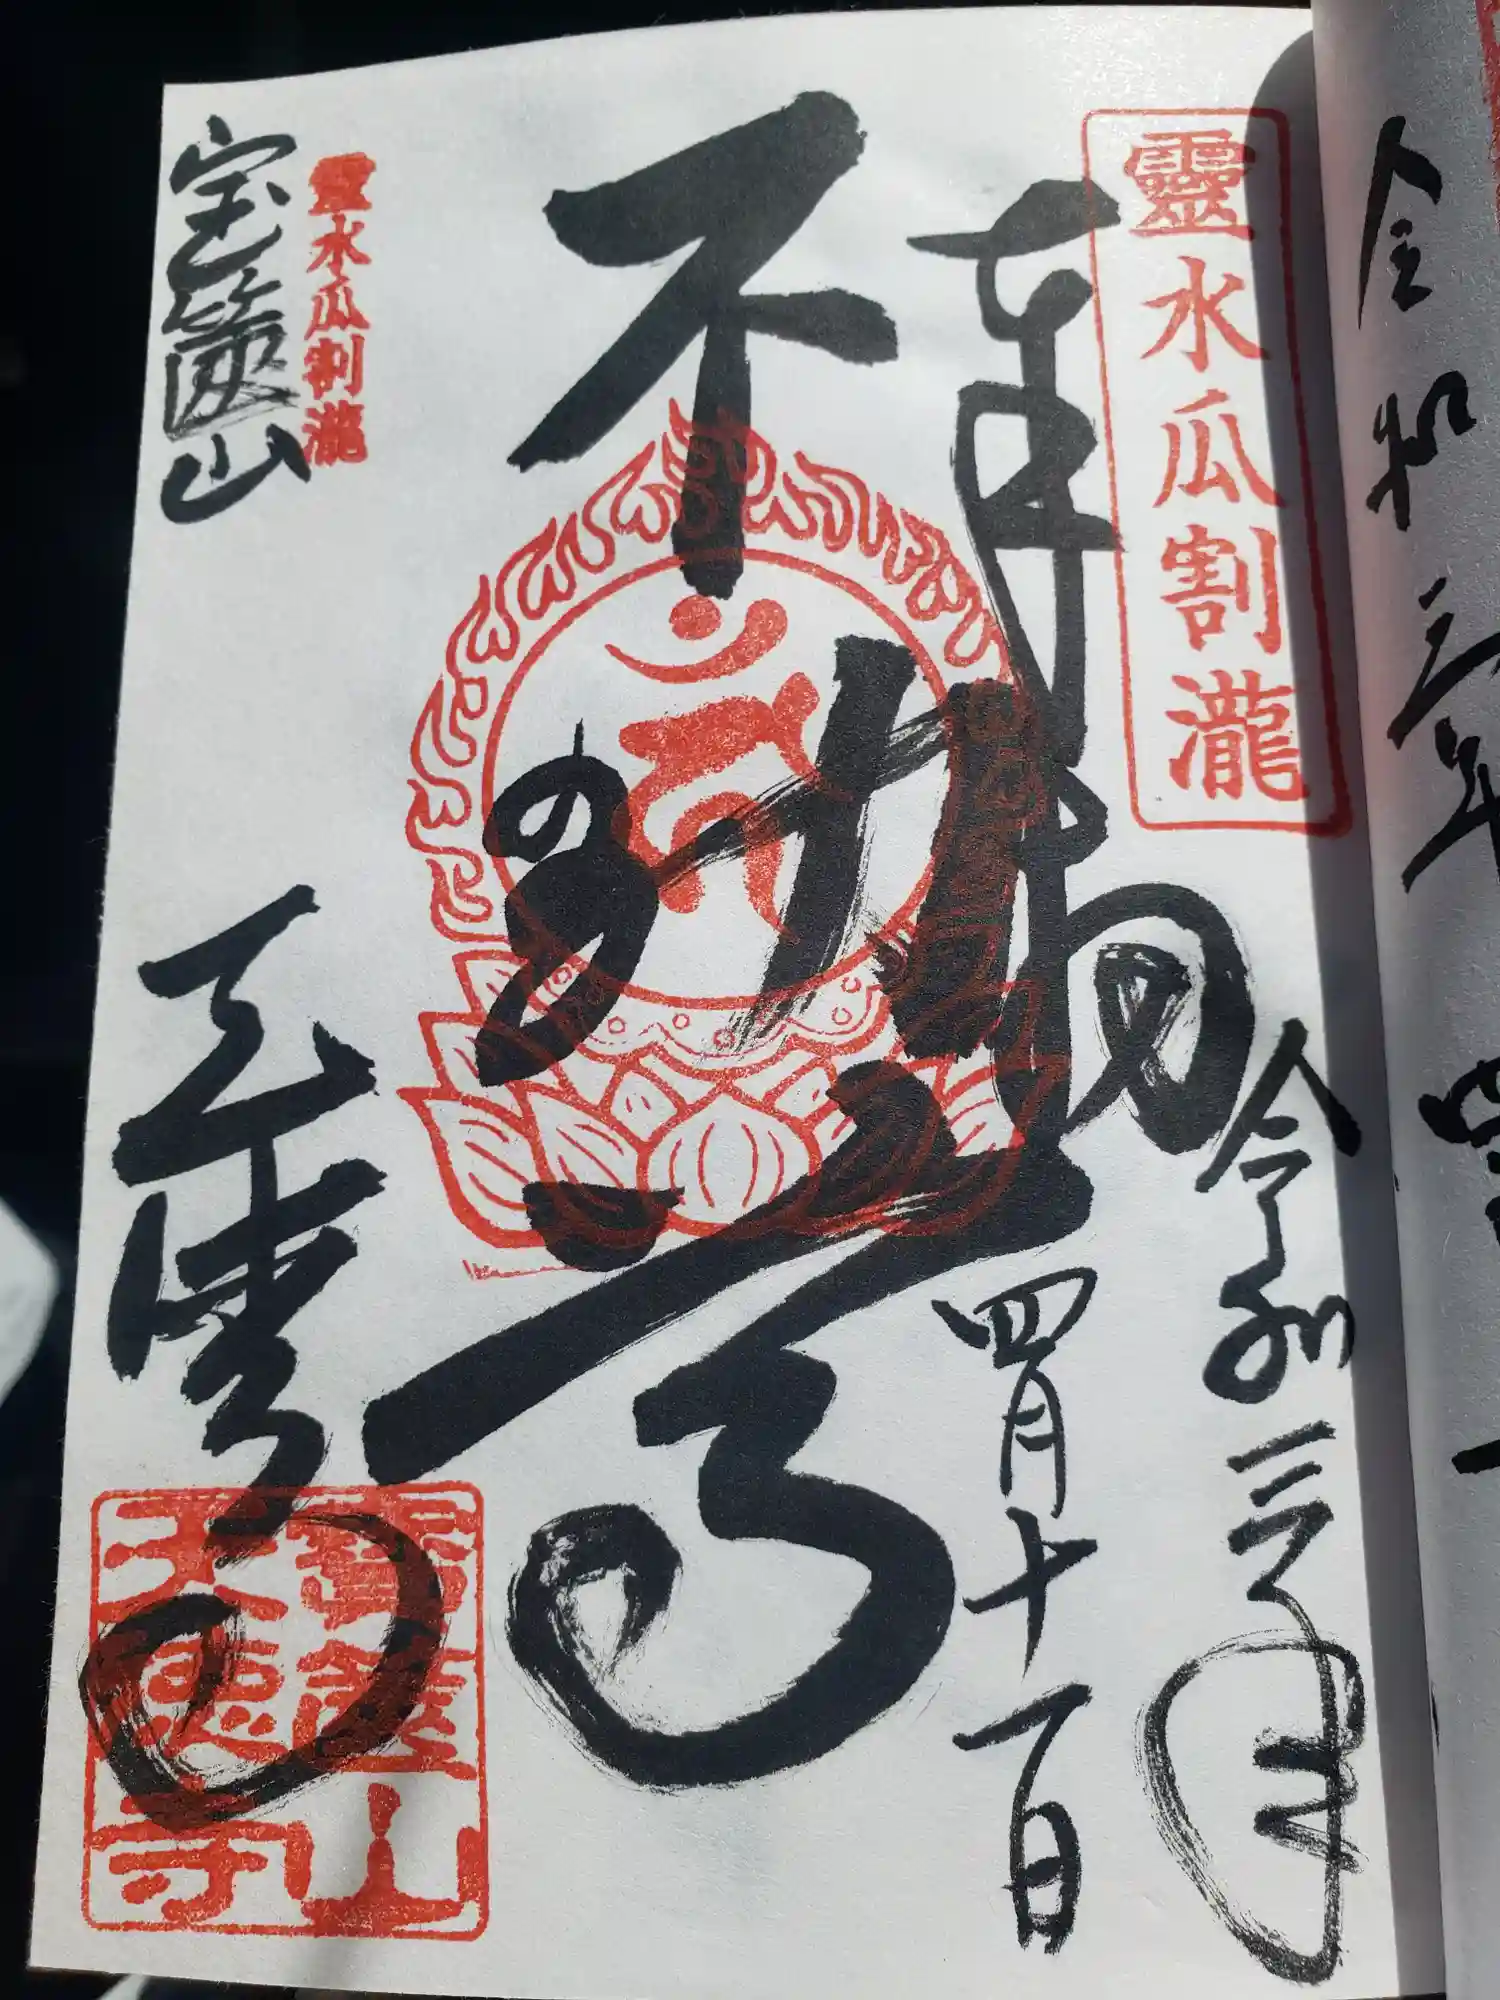 令和三年四
靈水瓜割瀧
令和三年
奉拝
四月十一日
不動尊
靈水瓜割瀧
宝篋山
天徳寺
寶篋山
天徳寺